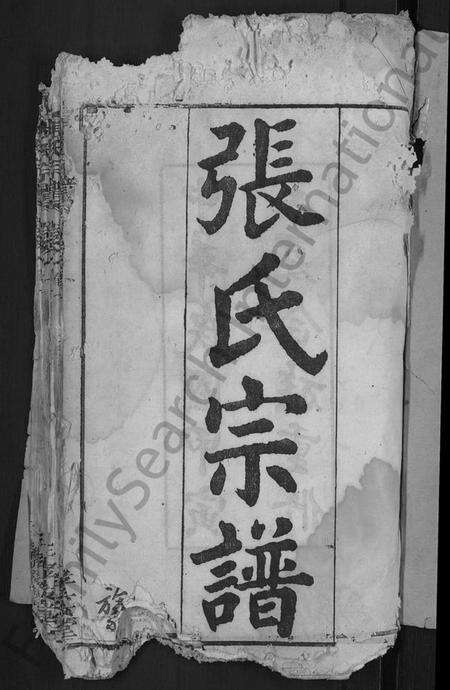 張氏宗譜
FamilySearch International